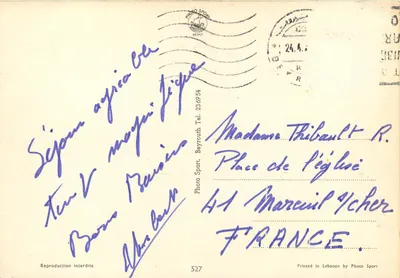 Séjour agréable
temps magnifique
Bons Baisers
24.4.
Photo Sport. Beyrouth Tel. 236954
Madame Thibault R.
Place de l'église
41 Mareuil s/cher
FRANCE.
Reproduction interdite
527
Printed in Lebanon by Photo Sport